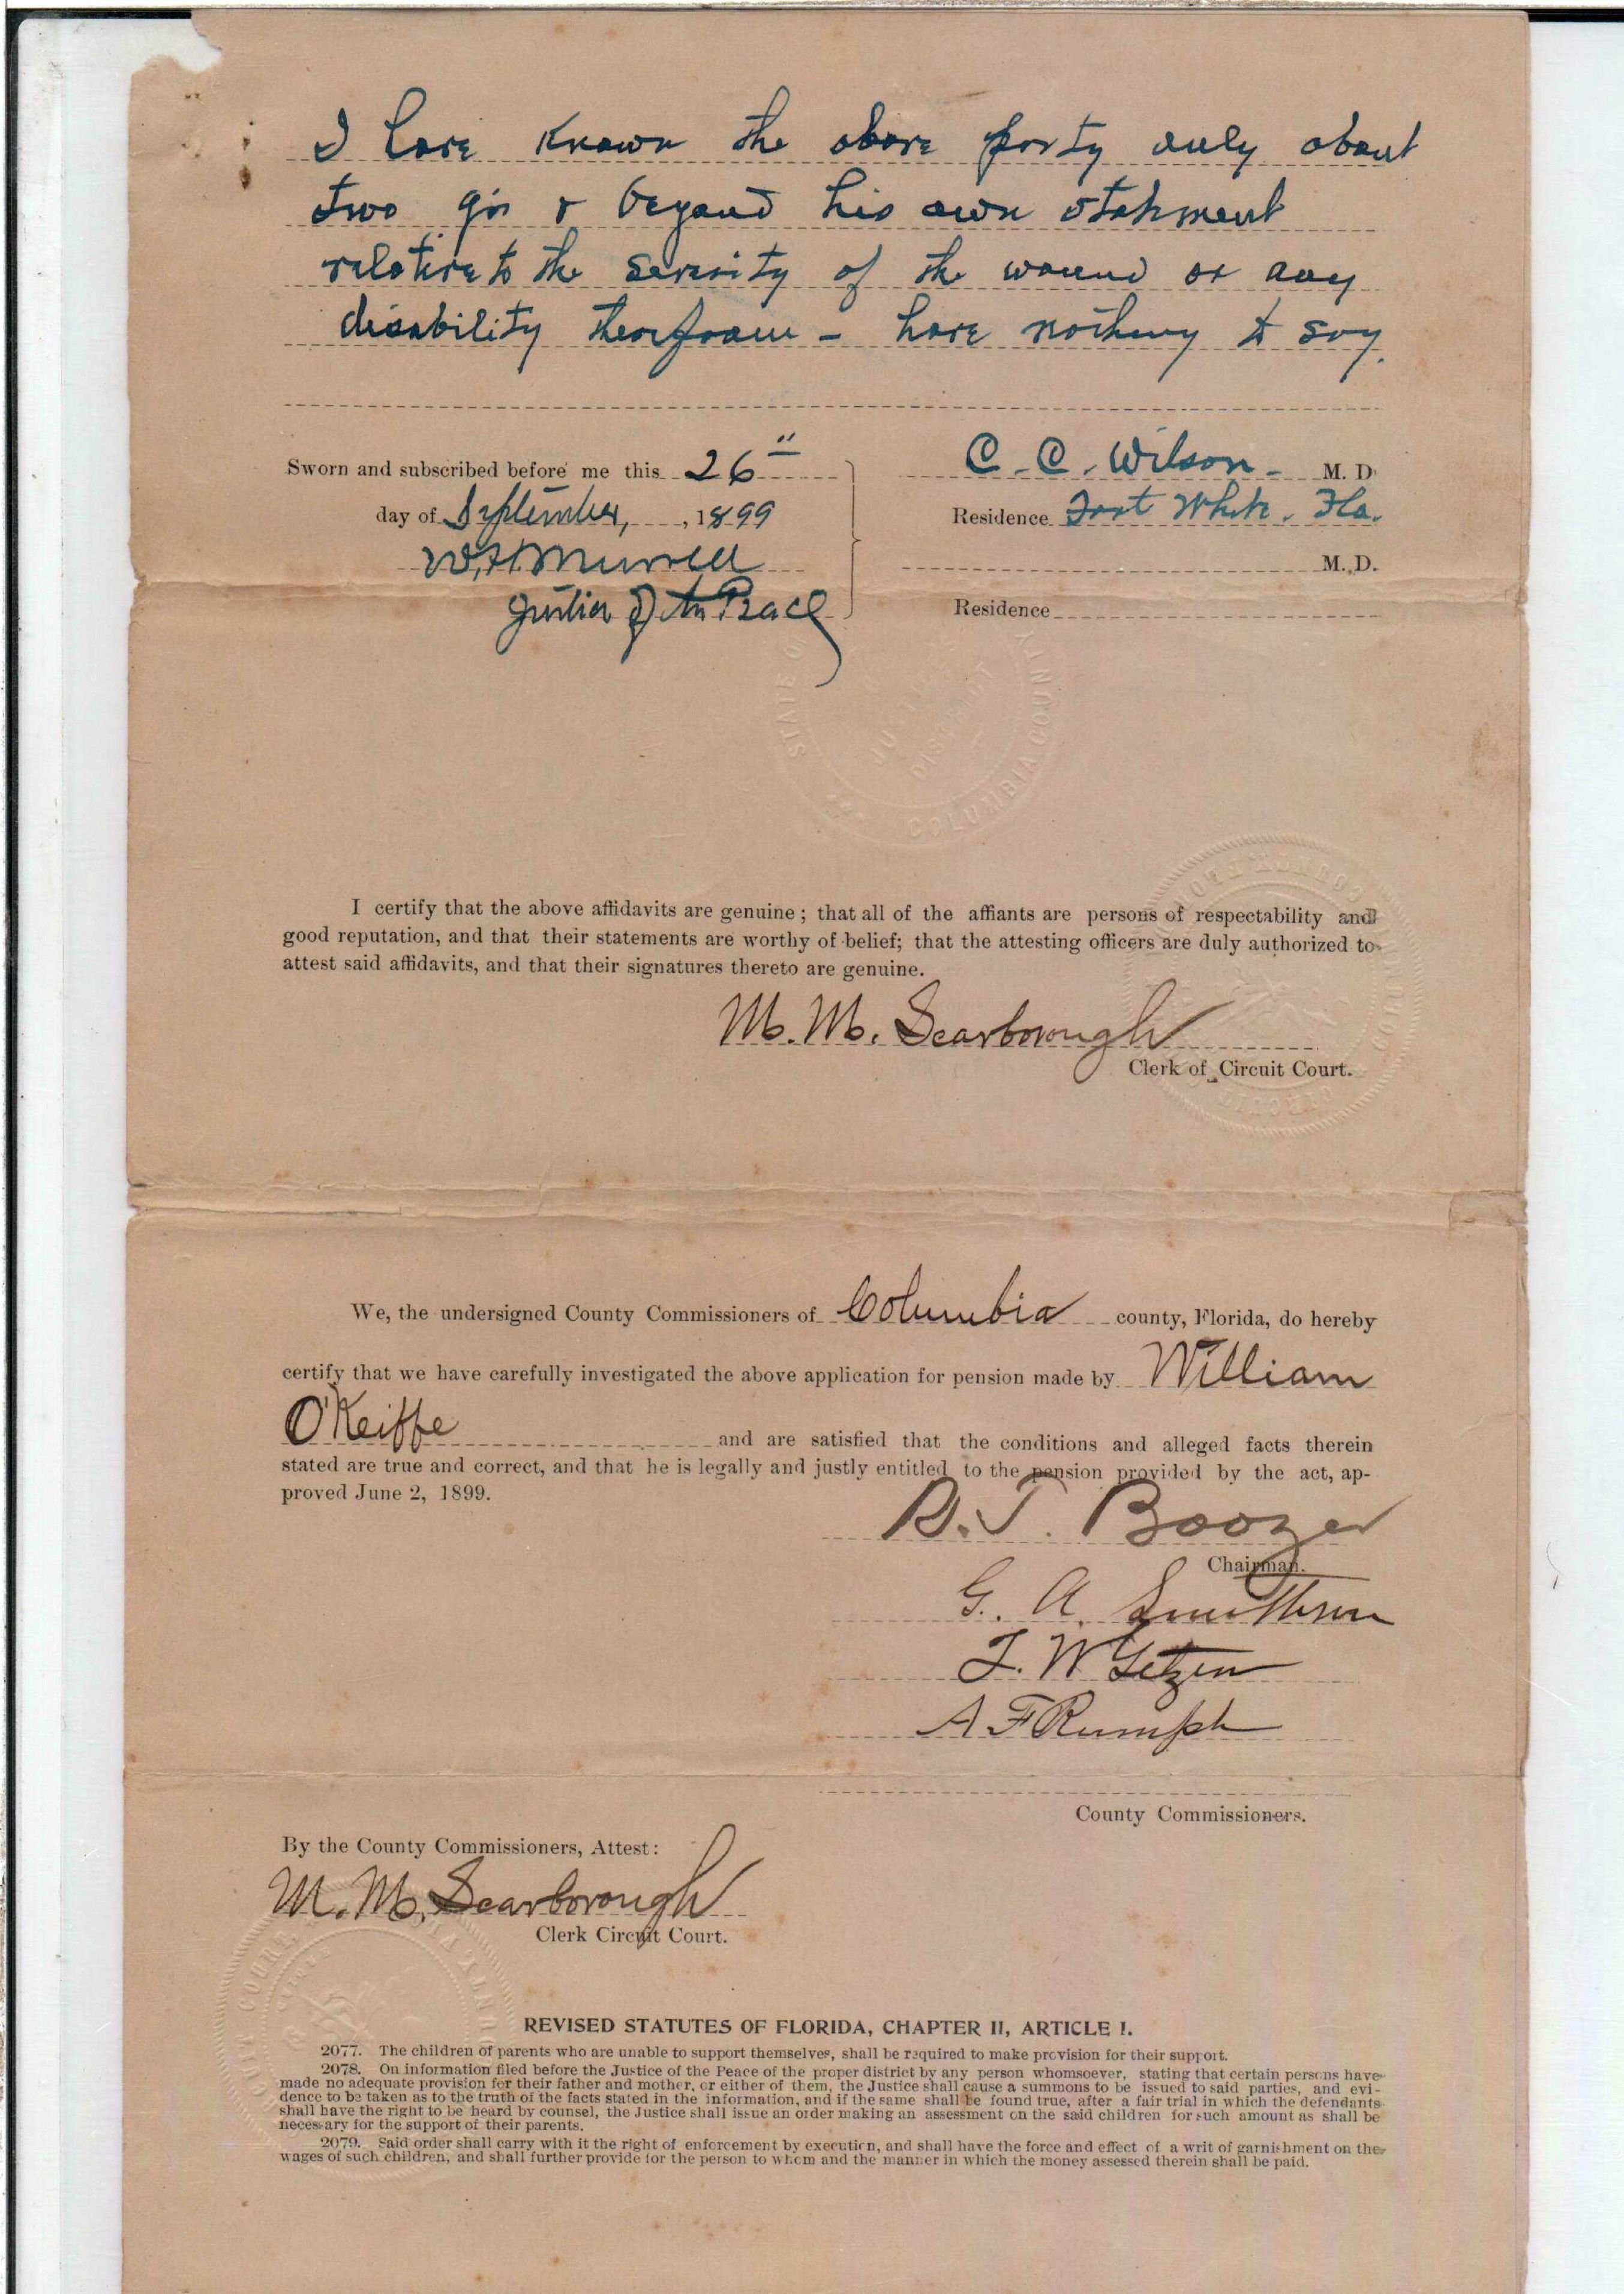 I have known the above party only about
two yrs & beyond his own statement
relative to the severity of the wound or any
disability therefrom - have nothing to say.
Sworn and subscribed before me this 26"
day of September, , 1899
W.H. Murrell
Justice of the Peace
C. C. Wilson - M. D
Residence Fort White, Fla.
M. D.
Residence
STATE O
JUST
DISTRICT
COLUMBIA COUNTY
I certify that the above affidavits are genuine; that all of the affiants are persons of respectability and
good reputation, and that their statements are worthy of belief; that the attesting officers are duly authorized to
attest said affidavits, and that their signatures thereto are genuine.
M. M. Scarborough
Clerk of Circuit Court.
We, the undersigned County Commissioners of Columbia county, Florida, do hereby
certify that we have carefully investigated the above application for pension made by William
O'Keiffe and are satisfied that the conditions and alleged facts therein
stated are true and correct, and that he is legally and justly entitled to the pension provided by the act, ap-
proved June 2, 1899.
B. T. Boozer
Chairman.
G. A. Smithson
T. W Getzen
A F Rumph
County Commissioners.
By the County Commissioners, Attest:
M. M. Scarborough
Clerk Circuit Court.
REVISED STATUTES OF FLORIDA, CHAPTER II, ARTICLE I.
2077. The children of parents who are unable to support themselves, shall be required to make provision for their support.
2078. On information filed before the Justice of the Peace of the proper district by any person whomsoever, stating that certain persons have
made no adequate provision for their father and mother, or either of them, the Justice shall cause a summons to be issued to said parties, and evi-
dence to be taken as to the truth of the facts stated in the information, and if the same shall be found true, after a fair trial in which the defendants
shall have the right to be heard by counsel, the Justice shall issue an order making an assessment on the said children for such amount as shall be
necessary for the support of their parents.
2079. Said order shall carry with it the right of enforcement by execution, and shall have the force and effect of a writ of garnishment on the
wages of such children, and shall further provide for the person to whom and the manner in which the money assessed therein shall be paid.